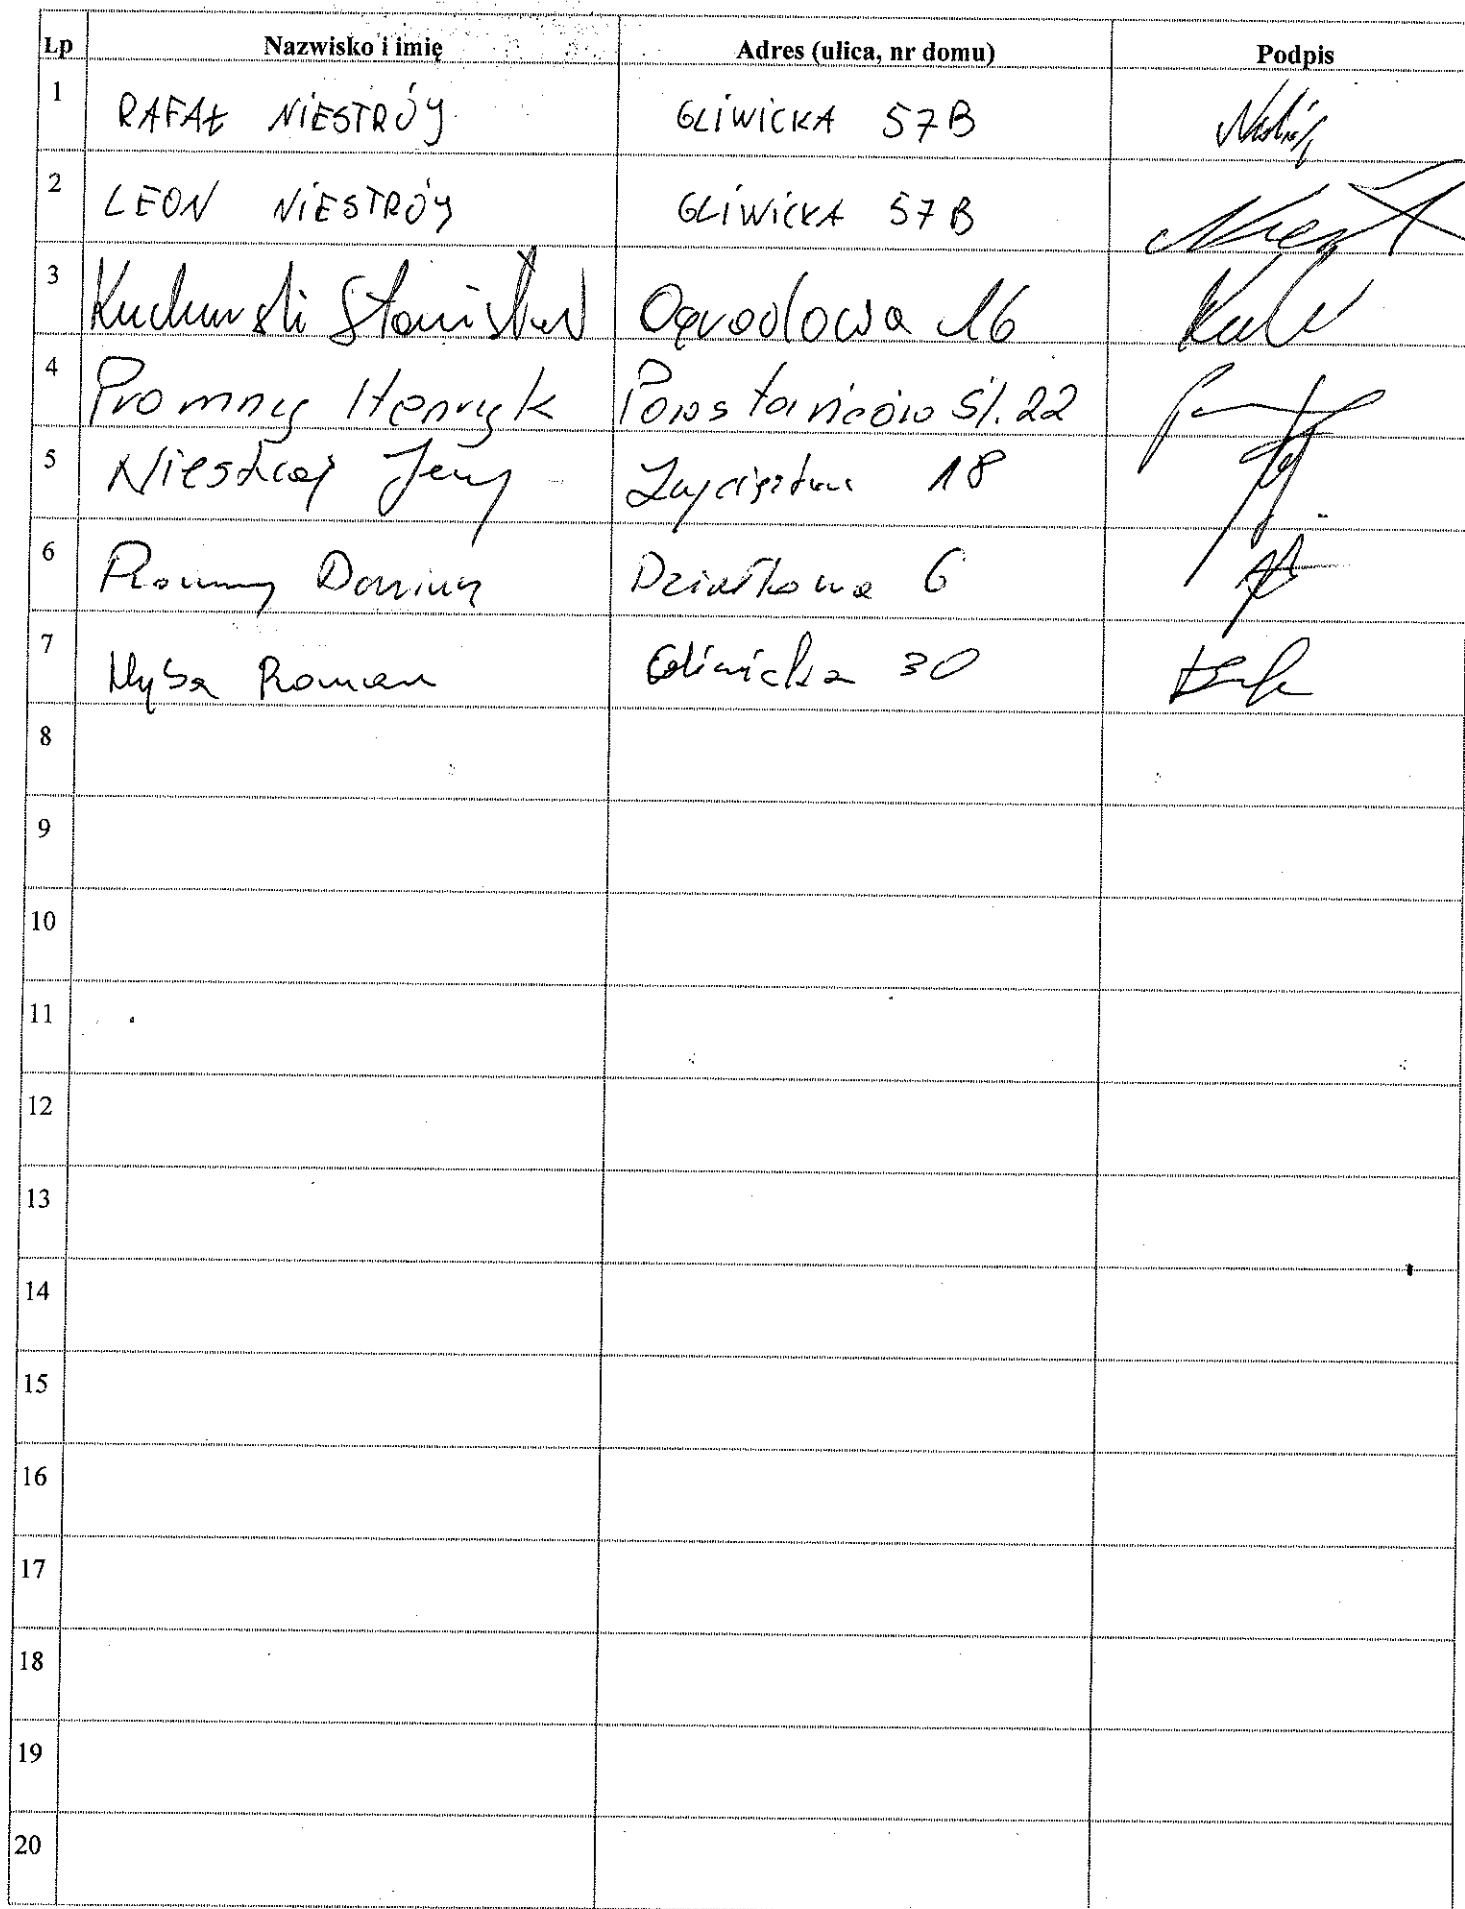 Lp Nazwisko i imię Adres (ulica, nr domu) Podpis
1 RAFAŁ NIESTRÓY GLIWICKA 57B
2 LEON NIESTRÓY GLIWICKA 57B
3 Stanisław Ogrodowa 16
4 Promny Henryk Powstańców Śl. 22
5 Jerzy Zwycięstwa 18
6 Promny Dariusz Działkowa 6
7 Roman Gliwicka 30
8
9
10
11
12
13
14
15
16
17
18
19
20